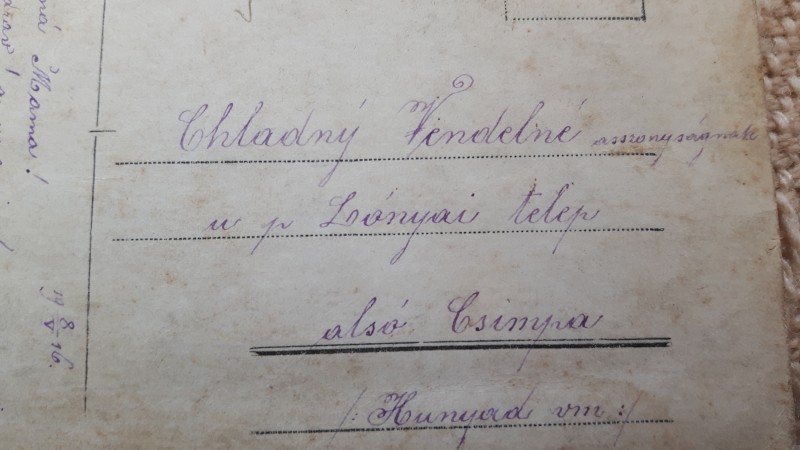 Chladný Vendelné asszonyságnak
u p Lónyai telep
alsó Csimpa
/: Hunyad vm :/
Mama!
19 8/V 16.